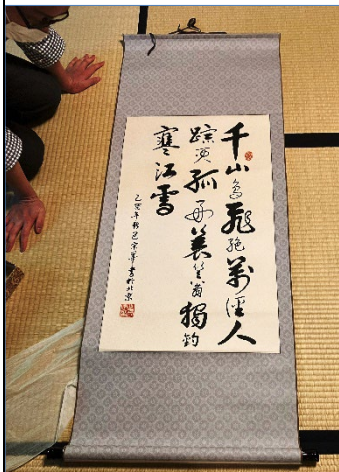 千山鳥飛絶萬徑人
踪滅孤舟蓑笠翁獨釣
寒江雪
年宗華書於北京